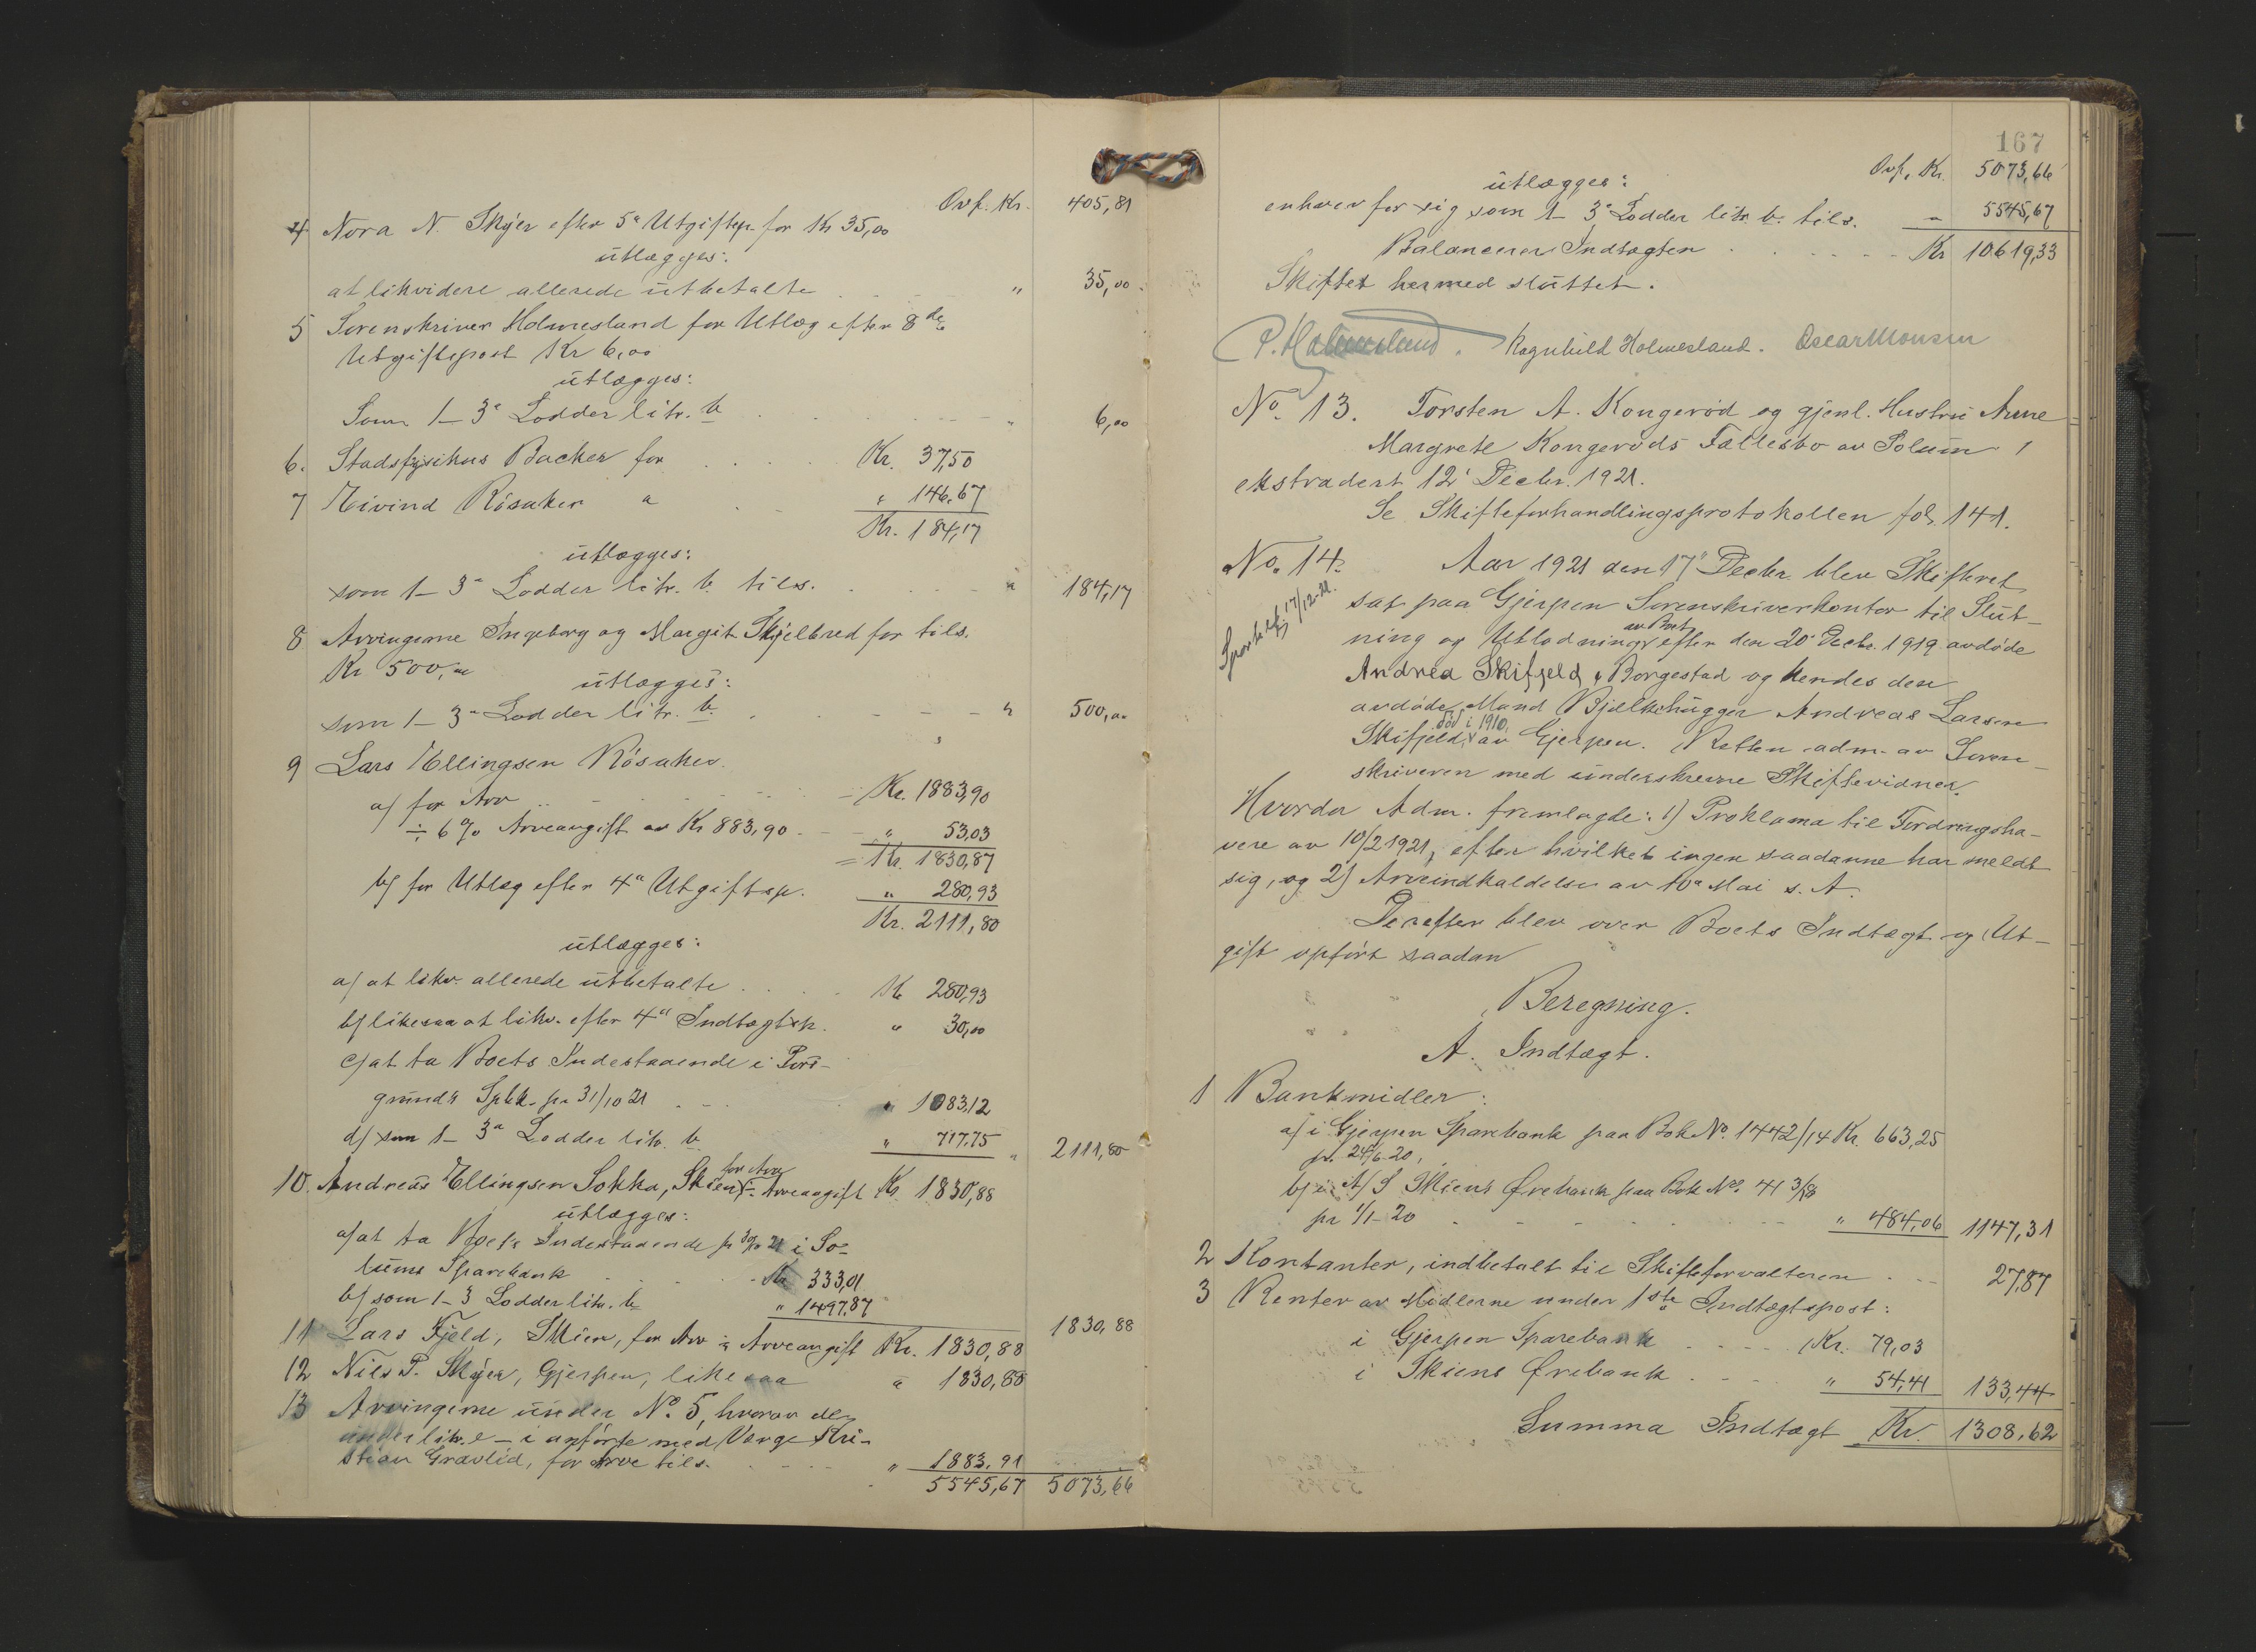 Ovf. Kr. 405,81
4 Nora N. Skyer efter 5te Utgiftsp. for Kr 35,00
utlægges:
at likvidere allerede utbetalte " 35,00
5 Sorenskriver Holmesland for Utlæg efter 8de
Utgiftspost Kr 6,00
utlægges:
Som 1–3a Lodder litr. b " 6,00
6. Stadsfysikus Backer for Kr. 37,50
7 Eivind Rösaker " " 146,67
Kr. 184,17
utlægges:
som 1–3a Lodder litr. b. tils. " 184,17
8 Arvingerne Ingeborg og Margit Skjelbred for tils.
Kr 500,00
utlægges:
som 1–3a Lodder litr. b. " 500,00
9 Lars Ellingsen Rösaker.
a) for Arv Kr. 1883,90
÷ 6 % Arveavgift av Kr 883,90 " 53,03
= Kr. 1830,87
b) for Utlæg efter 4a Utgiftsp. " 280,93
Kr. 2111,80
utlægges:
a) at likv. allerede utbetalte Kr 280,93
b) likesaa at likv. efter 4a Indtægtsp. " 30,00
c) at ta Boets Indestaaende i Pors-
grunds Spbk. pr 31/10 21 " 1083,12
d) som 1–3a Lodder litr. b " 717,75 " 2111,80
10. Andreas Ellingsen Sokka, Skien, for Arv ÷ Arveavgift Kr. 1830,88
utlægges:
a) at ta Boets Indestaaende pr 30/10 21 i So-
lums Sparebank Kr. 333,01
b) som 1–3 Lodder litr. b " 1497,87
1830,88
11 Lars Fjeld, Skien, for Arv ÷ Arveavgift Kr. 1830,88
12 Nils P. Skyer, Gjerpen, likesaa " 1830,88
13 Arvingerne under No. 5, hvorav de
under litr. e – i anførte med Verge Kri-
stian Gravlid, for Arve tils. " 1883,91
5545,67 5073,66
167
Ovf. Kr. 5073,66
utlægges:
enhver for sig som 1–3a Lodder litr. b. tils. " 5545,67
Balancerer Indtægten Kr 10619,33
Skiftet hermed sluttet.
P. Holmesland. Ragnhild Holmesland. Oscar Monsen
No. 13. Torsten A. Kongerød og gjenl. Hustru Anne
Margrete Kongerøds Fællesbo av Solum
ekstradert 12' Decbr. 1921.
Se Skifteforhandlingsprotokollen fol. 141.
No. 14. Aar 1921 den 17" Decbr. blev Skifteret
sat paa Gjerpen Sorenskriverkontor til Slut-
17/12-21.
ning og Utlodning av Boet efter den 20' Decbr. 1919 avdøde
Andrea Skifjeld, Borgestad og hendes den
avdøde Mand Bjelkehugger Andreas Larsen
Skifjeld, død i 1910, av Gjerpen. Retten adm. av Soren-
skriveren med underskrevne Skiftevidner.
Hvorda Adm. fremlagde: 1) Proklama til Fordringsha-
vere av 10/2 1921, efter hvilket ingen saadanne har meldt
sig, og 2) Arveindkaldelse av 10a Mai s. A.
Derefter blev over Boets Indtægt og Ut-
gift opført saadan
Beregning.
A. Indtægt.
1 Bankmidler:
a) i Gjerpen Sparebank paa Bok No. 1442/14 Kr. 663,25
pr. 24/6-20,
b) i A/S Skiens Ørebank paa Bok No. 41 3/58
pr 1/1-20 " 484,06 1147,31
2 Kontanter, indbetalt til Skifteforvalteren 27,87
3 Renter av Midlerne under 1ste Indtægtspost:
i Gjerpen Sparebank Kr. 79,03
i Skiens Ørebank " 54,41 133,44
Summa Indtægt Kr. 1308,62